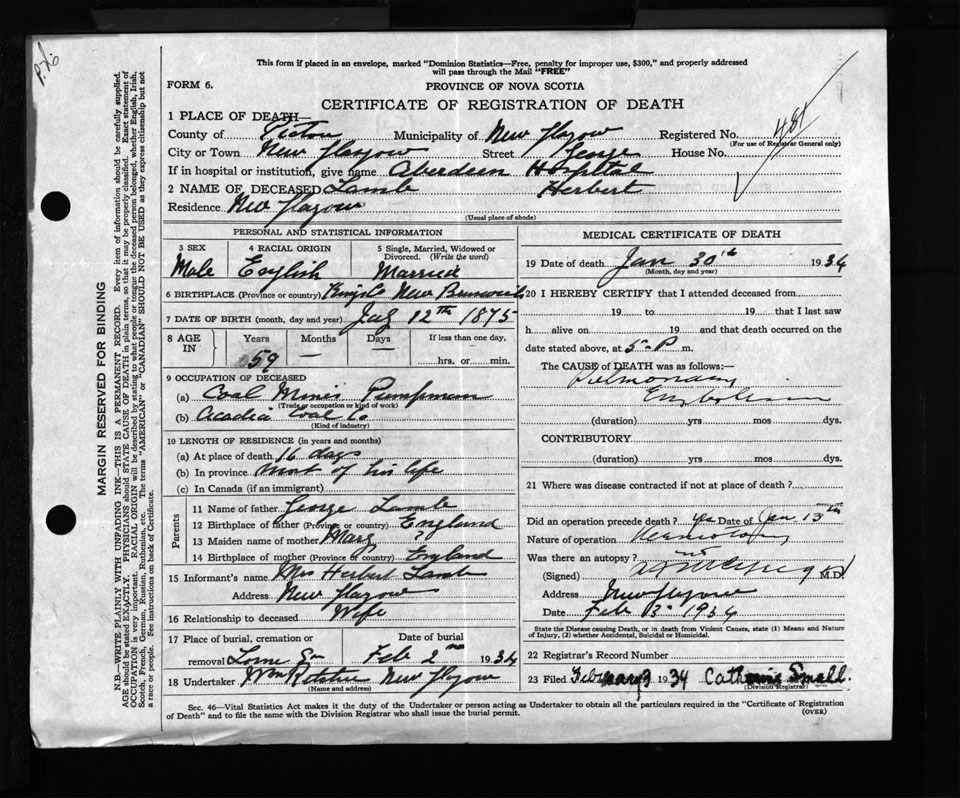 P.No
This form if placed in an envelope, marked "Dominion Statistics—Free, penalty for improper use, $300," and properly addressed
will pass through the Mail "FREE"
FORM 6.
PROVINCE OF NOVA SCOTIA
CERTIFICATE OF REGISTRATION OF DEATH
1 PLACE OF DEATH—
County of Pictou Municipality of New Glasgow Registered No. 481
(For use of Registrar General only)
City or Town New Glasgow Street George House No.
If in hospital or institution, give name Aberdeen Hospital
2 NAME OF DECEASED Lamb Herbert
Residence New Glasgow
(Usual place of abode)
PERSONAL AND STATISTICAL INFORMATION
3 SEX 4 RACIAL ORIGIN 5 Single, Married, Widowed or
Divorced. (Write the word)
Male English Married
6 BIRTHPLACE (Province or country) Kings Co New Brunswick
7 DATE OF BIRTH (month, day and year) July 12th 1875
8 AGE IN Years Months Days If less than one day,
59 — — hrs. or min.
9 OCCUPATION OF DECEASED
(a) Coal Mines Pumpman
(Trade or occupation or kind of work)
(b) Acadia Coal Co
(Kind of industry)
10 LENGTH OF RESIDENCE (in years and months)
(a) At place of death 16 days
(b) In province most of his life
(c) In Canada (if an immigrant)
Parents
11 Name of father George Lamb
12 Birthplace of father (Province or country) England
13 Maiden name of mother Mary ?
14 Birthplace of mother (Province or country) England
15 Informant's name Mrs Herbert Lamb
Address New Glasgow
16 Relationship to deceased Wife
17 Place of burial, cremation or Date of burial
removal Lorne St Feb 2nd 1934
18 Undertaker New Glasgow
(Name and address)
MEDICAL CERTIFICATE OF DEATH
19 Date of death Jan 30th 1934
(Month, day and year)
20 I HEREBY CERTIFY that I attended deceased from
19 to 19 that I last saw
h alive on 19 and that death occurred on
date stated above, at 5 P m.
The CAUSE of DEATH was as follows:—
Pulmonary
Embolism
(duration) yrs mos dys.
CONTRIBUTORY
(duration) yrs mos dys.
21 Where was disease contracted if not at place of death?
Did an operation precede death? yes Date of Jan 13th
Nature of operation Herniotomy
Was there an autopsy? no
(Signed) M.D
Address New Glasgow
Date Feb 1934
State the Disease causing Death, or in death from Violent Causes, state (1) Means and Nature
of Injury, (2) whether Accidental, Suicidal or Homicidal.
22 Registrar's Record Number
23 Filed February 3 1934 Catherine Small.
(Division Registrar)
Sec. 46—Vital Statistics Act makes it the duty of the Undertaker or person acting as Undertaker to obtain all the particulars required in the "Certificate of Registration
of Death" and to file the same with the Division Registrar who shall issue the burial permit.
(OVER)
MARGIN RESERVED FOR BINDING
N.B.—WRITE PLAINLY WITH UNFADING INK—THIS IS A PERMANENT RECORD. Every item of information should be carefully supplied.
AGE should be stated EXACTLY. PHYSICIANS should STATE CAUSE OF DEATH in plain terms, so that it may be properly classified. Exact statement of
OCCUPATION is very important. RACIAL ORIGIN will be described by stating to what people or tongue the deceased person belonged, whether English, Irish,
Scotch, French, German, Russian, Ruthenian, etc. The terms "AMERICAN" or "CANADIAN" SHOULD NOT BE USED as they express citizenship but not
a race or people. See instructions on back of Certificate.